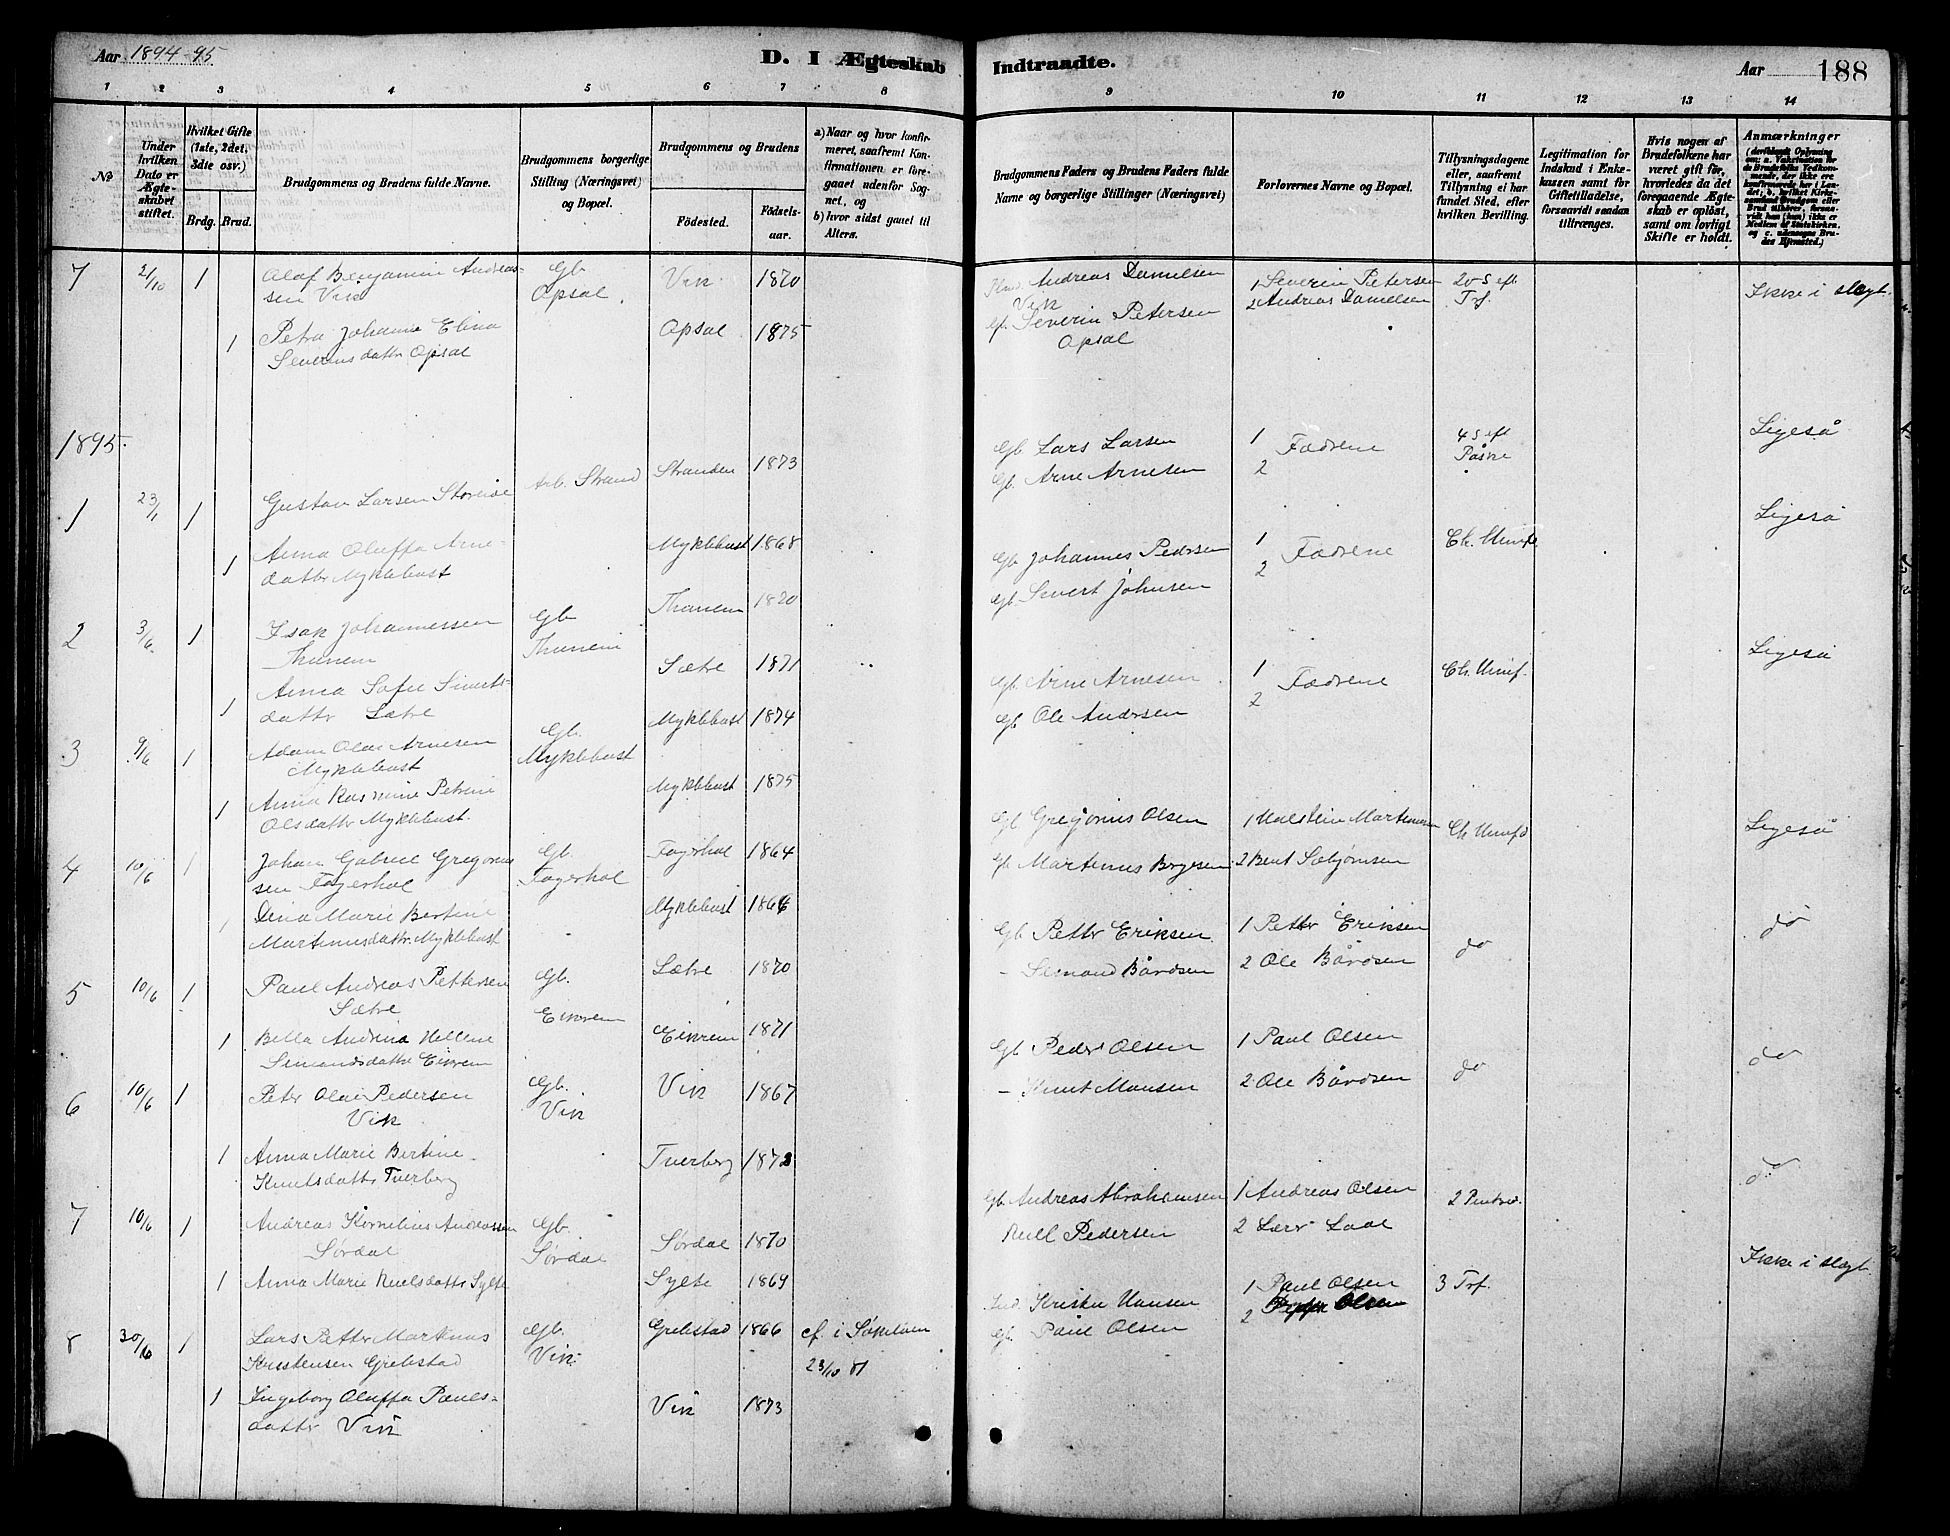 Aar 1894-95
D. I Ægteskab Indtraadte.
Aar
188
1 2 3 4 5 6 7 8 9 10 11 12 13 14
No
Under hvilken Dato er Ægteskabet stiftet.
Hvilket Gifte (1ste, 2det, 3die osv.)
Brdg. Brud.
Brudgommens og Brudens fulde Navne.
Brudgommens borgerlige Stilling (Næringsvei) og Bopæl.
Brudgommens og Brudens
Fødested.
Fødselsaar.
a) Naar og hvor konfirmeret, saafremt Konfirmationen er foregaaet udenfor Sognet, og
b) hvor sidst gaaet til Alters.
Brudgommens Faders og Brudens Faders fulde Navne og borgerlige Stillinger (Næringsvei)
Forlovernes Navne og Bopæl.
Tillysningsdagene eller, saafremt Tillysning ei har fundet Sted, efter hvilken Bevilling.
Legitimation for Indskud i Enkekassen samt for Giftetilladelse, forsaavidt saadan tiltrænges.
Hvis nogen af Brudefolkene har været gift før, hvorledes da det foregaaende Ægteskab er opløst, samt om lovligt Skifte er holdt.
Anmærkninger
7 21/10 1 Olaf Benjamin Andreas- Gb Vik 1870 Andreas Danielsen 1 Severin Petersen 20 S eft Ikke i slægt.
sen Vik Opsal Vik 2 Andreas Danielsen Trf.
1 Petra Johanne Elina Opsal 1875 Gb. Severin Petersen
Severinsdattr Opsal Opsal
1895.
1 23/1 1 Gustav Larsen Arb. Strand Stranden 1873 Gb Lars Larsen 1 Fædrene 4 S eft Ligeså
Gb. Arne Arnesen 2 Påske
1 Anna Oluffa Arne- Myklebust 1868
dattr Myklebust
2 3/6 1 Isak Johannessen Gb Thunem 1870 Gb Johannes Pedersen 1 Fædrene Ligeså
Thunem Thunem Gb Sivert Johnsen 2
1 Anna Sofie Siverts- Sætre 1871
dattr Sætre
3 9/6 1 Adam Olai Arnesen Gb. Myklebust 1874 Gb Arne Arnesen 1 Fædrene Ligeså
Myklebust Myklebust Gb Ole Andersen 2
1 Anna Rasmine Petrine Myklebust 1875
Olsdattr Myklebust.
4 10/6 1 Johan Gabriel Gregorius Gb. Fagerhol 1864 Gb Gregorius Olsen 1 Halstein Martinusen Ligeså
sen Fagerhol Fagerhol Gb Martinus 2 Bent
1 Dina Marie Bertine Myklebust 1866
Martinusdattr Myklebust
5 10/6 1 Paul Andreas Pettersen Gb. Sætre 1870 Gb Petter Eriksen 1 Petter Eriksen do do
Sætre Eikrem - Simand Bårdsen 2 Ole Bårdsen
1 Bella Andrina Hellene Eikrem 1871
Simandsdattr Eikrem
6 10/6 1 Peter Olai Pedersen Gb. Vik 1867 Gb Peder Olsen 1 Paul Olsen do do
Vik Vik - Knut Monsen 2 Ole Bårdsen
1 Anna Marie Bertine Tverberg 1872
Knutsdattr Tverberg
7 10/6 1 Andreas Kornelius Andreassen Gb. Sørdal 1870 Gb Andreas Abrahamsen 1 Andreas Olsen 2 do
Sørdal Sørdal Pedersen 2
1 Anna Marie Sylte Sylte 1869
8 30/6 1 Lars Petter Gb. Grebstad 1866 cf. i 1 Paul Olsen 3 Trf. Ikke i slægt.
Kristensen Grebstad Vik 23/10 81 Gb. Paul Olsen 2 Olsen
1 Ingeborg Oluffa Pauls- Vik 1873
dattr Vik